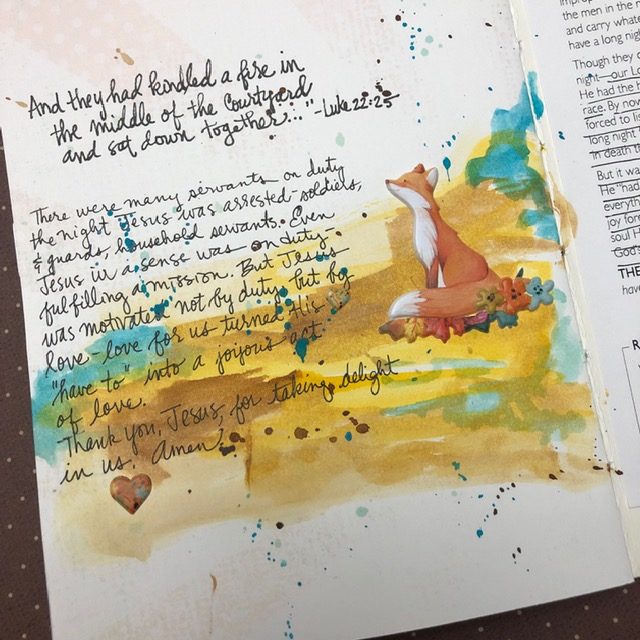 And they had kindled a fire in
the middle of the courtyard
and sat down together..." -Luke 22:25
There were many servants on duty
the night Jesus was arrested - soldiers,
& guards, household servants. Even
Jesus in a sense was on duty-
fulfilling a mission. But Jesus
was motivated not by duty, but by
love - love for us turned His
"have to" into a joyous act
of love.
Thank you, Jesus, for taking delight
in us. Amen.
the men in the
and carry
have a long
Though they
night—our
He had the
race. By
forced to
long night
in death
But it
He
joy for
soul
God's
THE
have